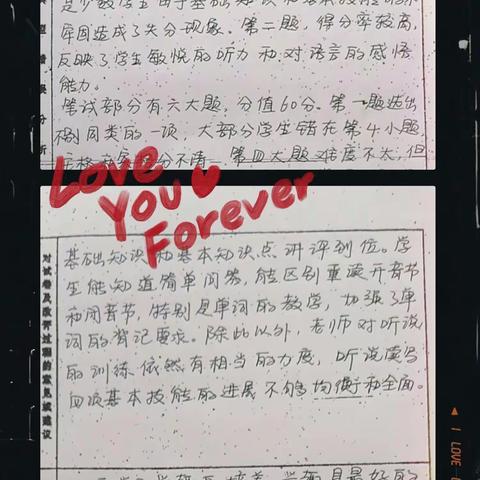 原因造成了失分现象。第二题，得分率较高，
反映了学生敏悦的听力和对语言的感悟
能力。
笔试部分有六大题，分值60分。第一题选出
同类的一项，大部分学生错在第4小题，
不清 第四大题难度不大，但
Love
You
Forever
对试卷及改评过程的意见或建议
基础知识和基本知识点讲评到位。学
生能知道简单问答，能区别重读开音节
和闭音节，特别是单词的教学，加强了单
词的背记要求。除此以外，老师对听说
的训练依然有相当的力度，听说读写
四项基本技能的进展不够均衡和全面。
I LOVE